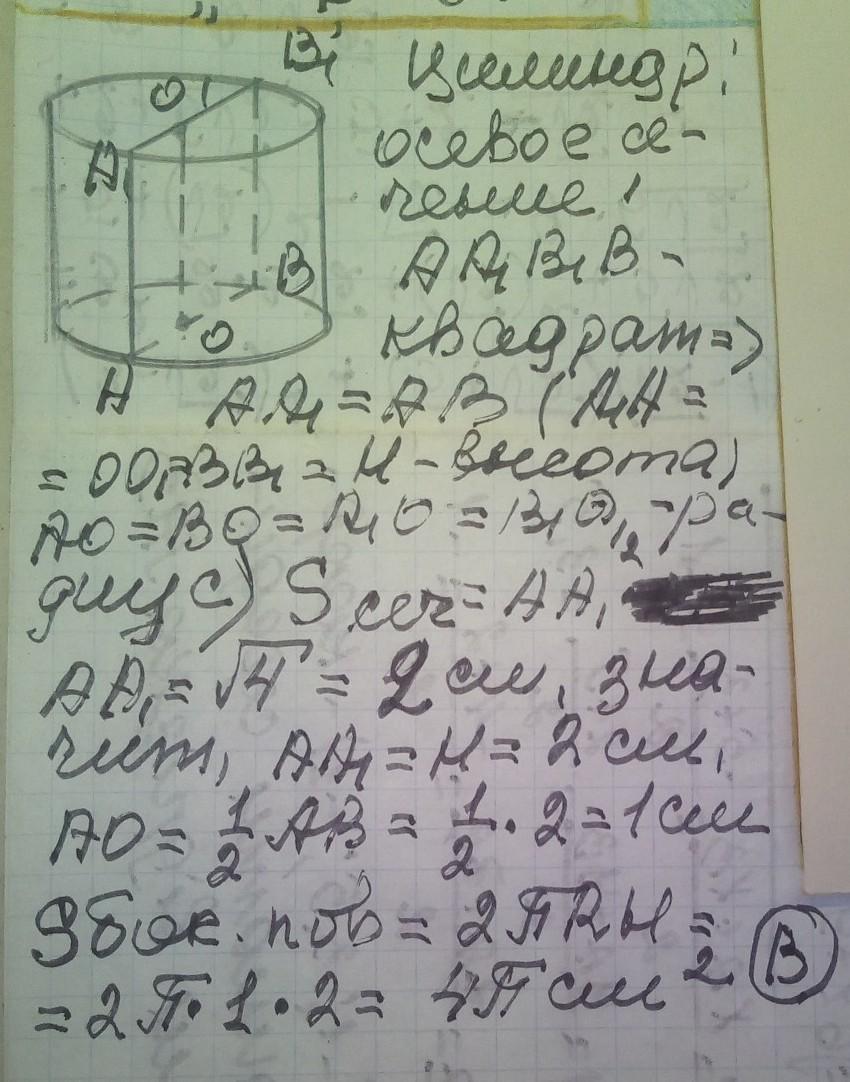 B₁
O₁
A₁
B
O
A
Цилиндр,
осевое се-
чение,
AA₁B₁B -
квадрат =>
AA₁ = AB (A₁A =
= OO₁=BB₁ = H - высота,
AO = BO = A₁O = B₁O₁, - ра-
диус) Sсеч = AA₁²
AA₁ = √4 = 2 см, зна-
чит, AA₁ = H = 2 см,
AO = 1/2 AB = 1/2 · 2 = 1 см
Sбок. пов = 2πRH =
= 2π · 1 · 2 = 4π см² (B)